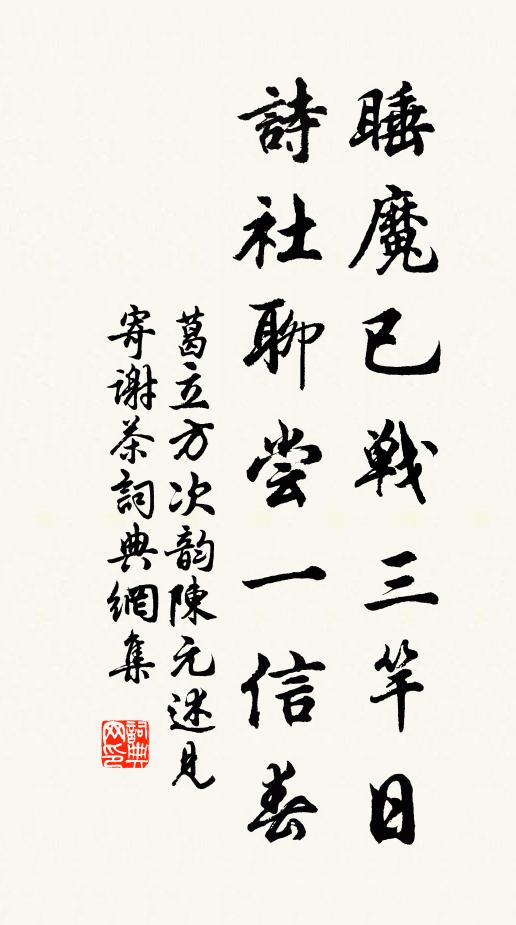 睡魔已戰三竿日
詩社聊嘗一信春
葛立方次韵陳元述見
寄謝茶詞典網集
詞典
网印